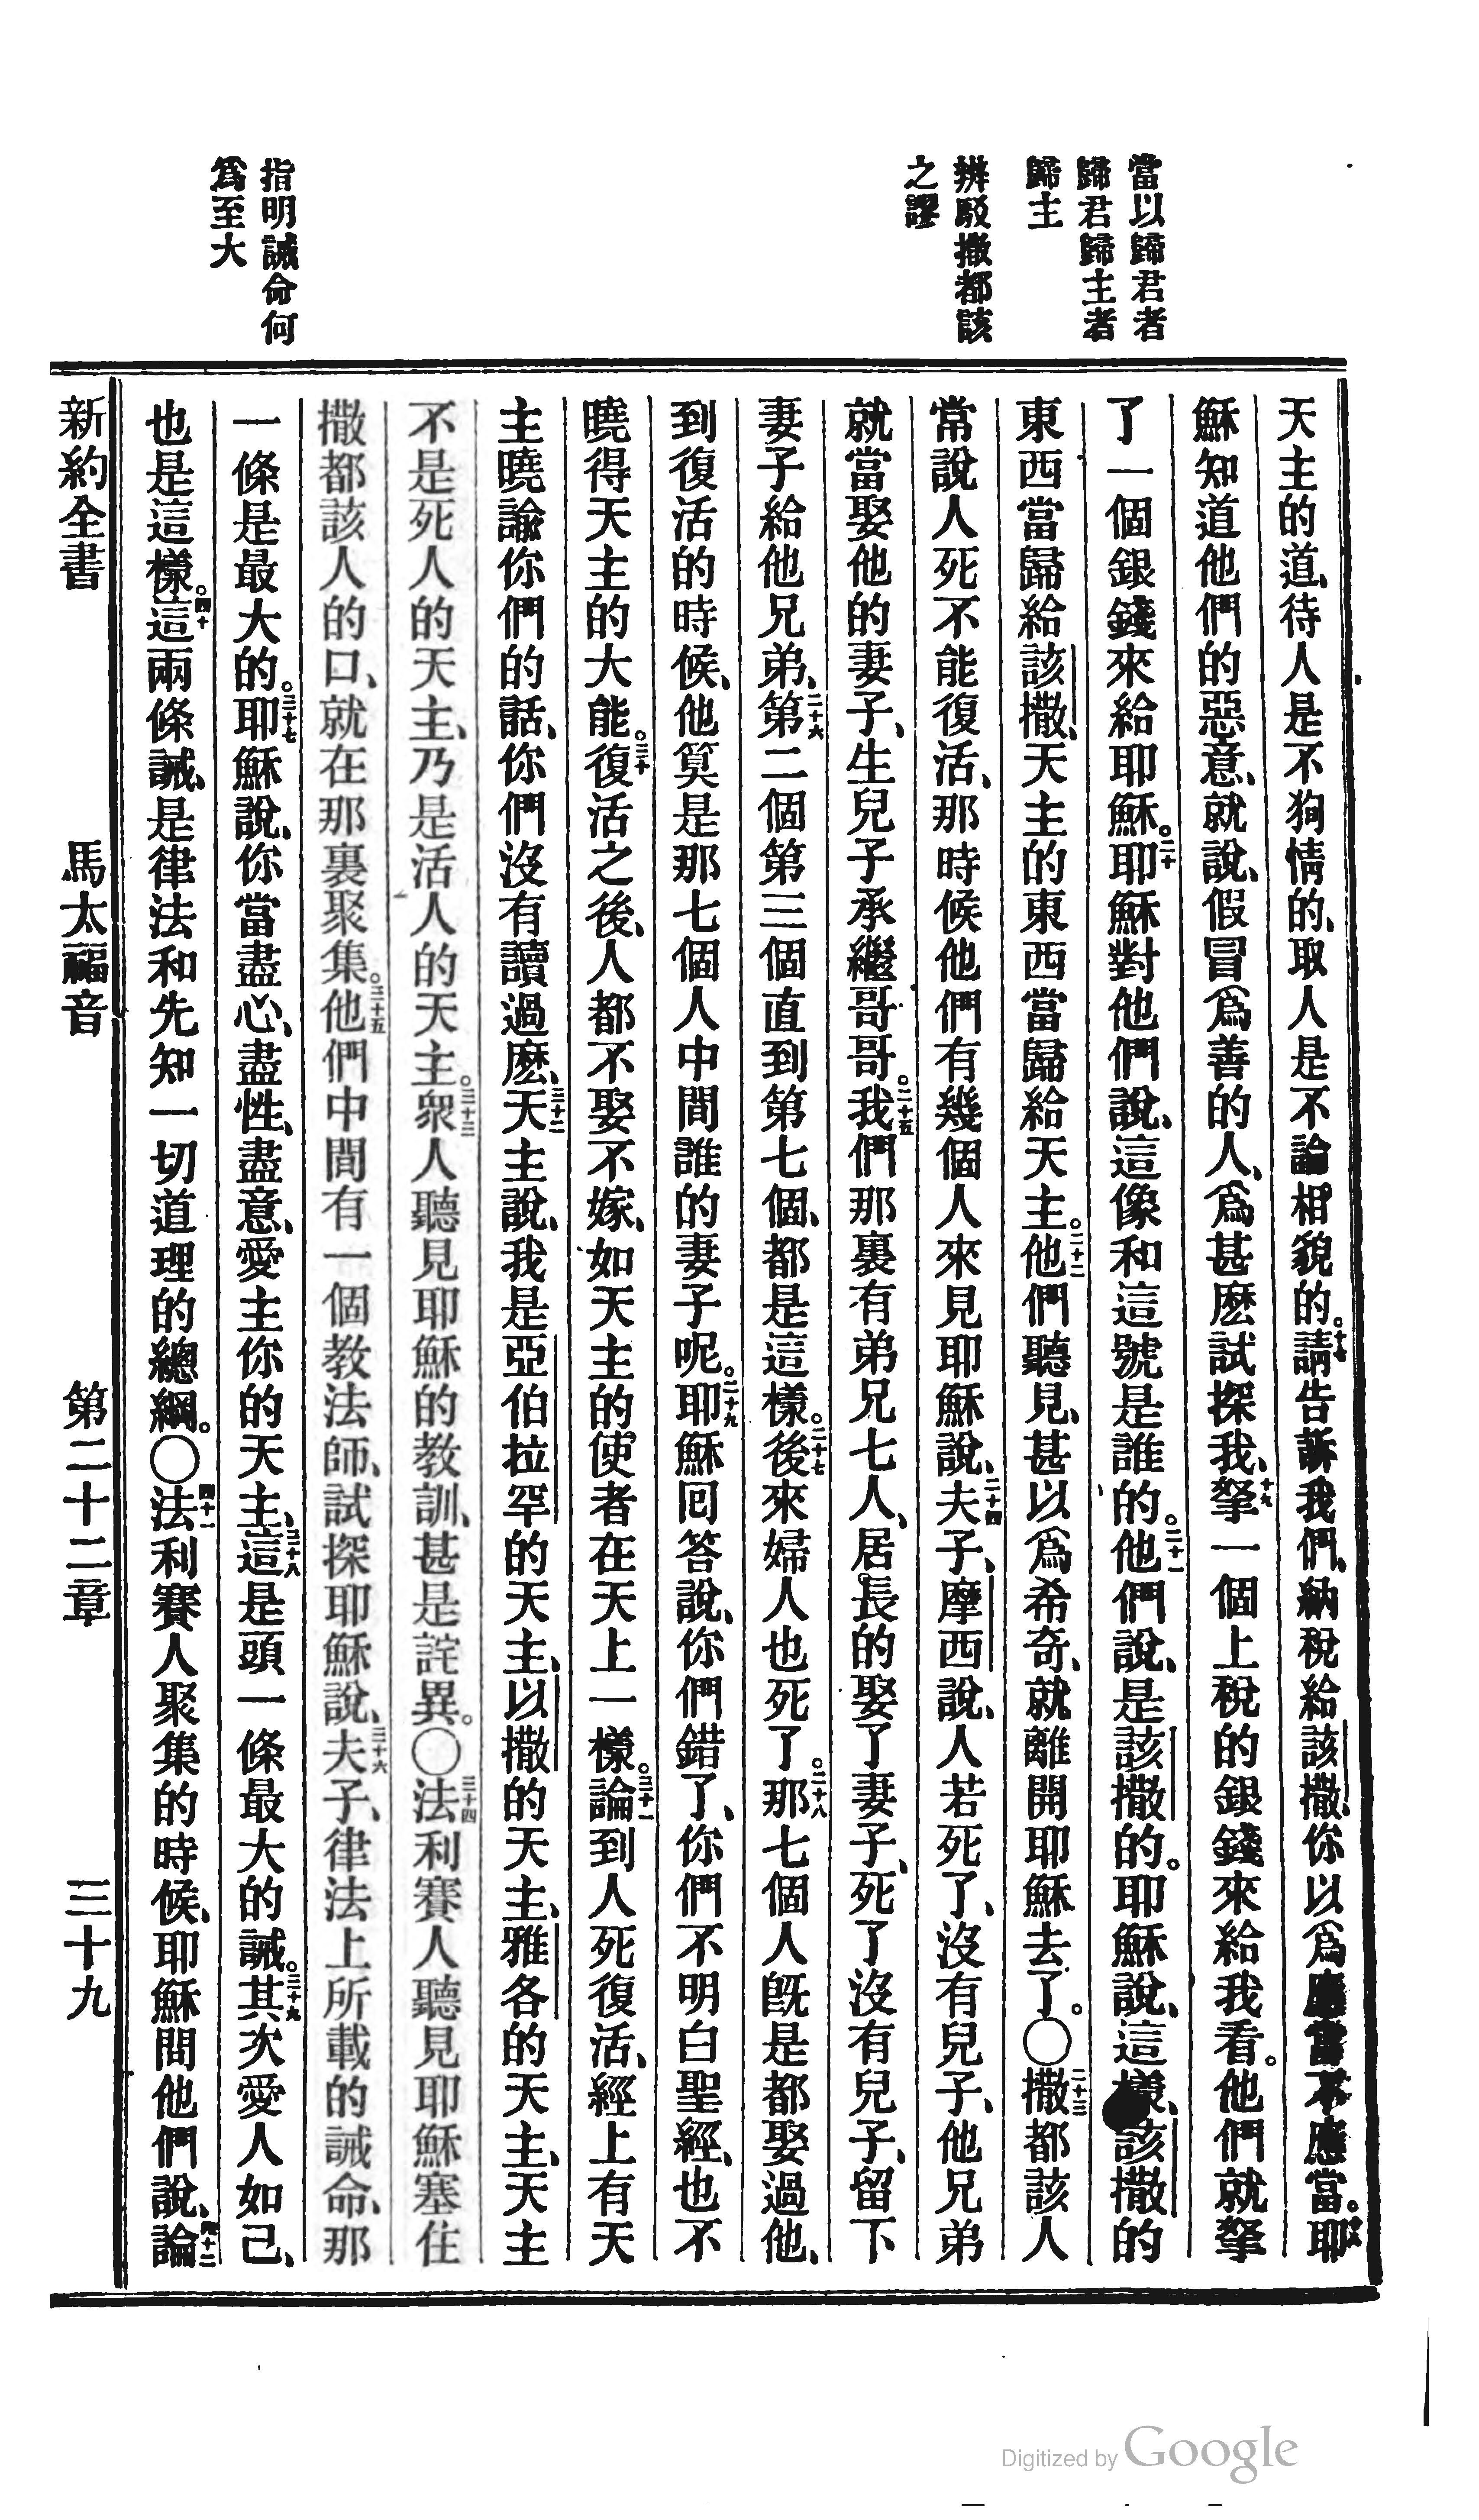 當以歸君者
歸君歸主者
歸主
辨駁撒都該
之謬
指明誡命何
爲至大
天主的道、待人是不狥情的、取人是不論相貌的。十七請告訴我們、納稅給該撒、你以爲應當不應當。十八耶
穌知道他們的惡意、就說、假冒爲善的人、爲甚麽試探我、十九拏一個上稅的銀錢來給我看。他們就拏
了一個銀錢來給耶穌。二十耶穌對他們說、這像和這號是誰的。二十一他們說、是該撒的。耶穌說、這樣、該撒的
東西當歸給該撒、天主的東西當歸給天主。二十二他們聽見、甚以爲希奇、就離開耶穌去了。〇二十三撒都該人
常說人死不能復活、那時候他們有幾個人來見耶穌說、二十四夫子、摩西說、人若死了、沒有兒子、他兄弟
就當娶他的妻子、生兒子承繼哥哥。二十五我們那裏有弟兄七人、居長的娶了妻子、死了沒有兒子、留下
妻子給他兄弟、二十六第二個第三個直到第七個、都是這樣。二十七後來婦人也死了。二十八那七個人旣是都娶過他、
到復活的時候、他算是那七個人中間誰的妻子呢。二十九耶穌回答說、你們錯了、你們不明白聖經、也不
曉得天主的大能。三十復活之後、人都不娶不嫁、如天主的使者在天上一樣。三十一論到人死復活、經上有天
主曉諭你們的話、你們沒有讀過麽、三十二天主說、我是亞伯拉罕的天主、以撒的天主、雅各的天主、天主
不是死人的天主、乃是活人的天主。三十三衆人聽見耶穌的教訓、甚是詫異。〇三十四法利賽人聽見耶穌塞住
撒都該人的口、就在那裏聚集。三十五他們中間有一個教法師、試探耶穌說、三十六夫子、律法上所載的誡命、那
一條是最大的。三十七耶穌說、你當盡心、盡性、盡意、愛主你的天主、三十八這是頭一條最大的誡。三十九其次愛人如己、
也是這樣。四十這兩條誡、是律法和先知一切道理的總綱。〇四十一法利賽人聚集的時候、耶穌問他們說、四十二論
新約全書 馬太福音 第二十二章 三十九
Digitized by Google